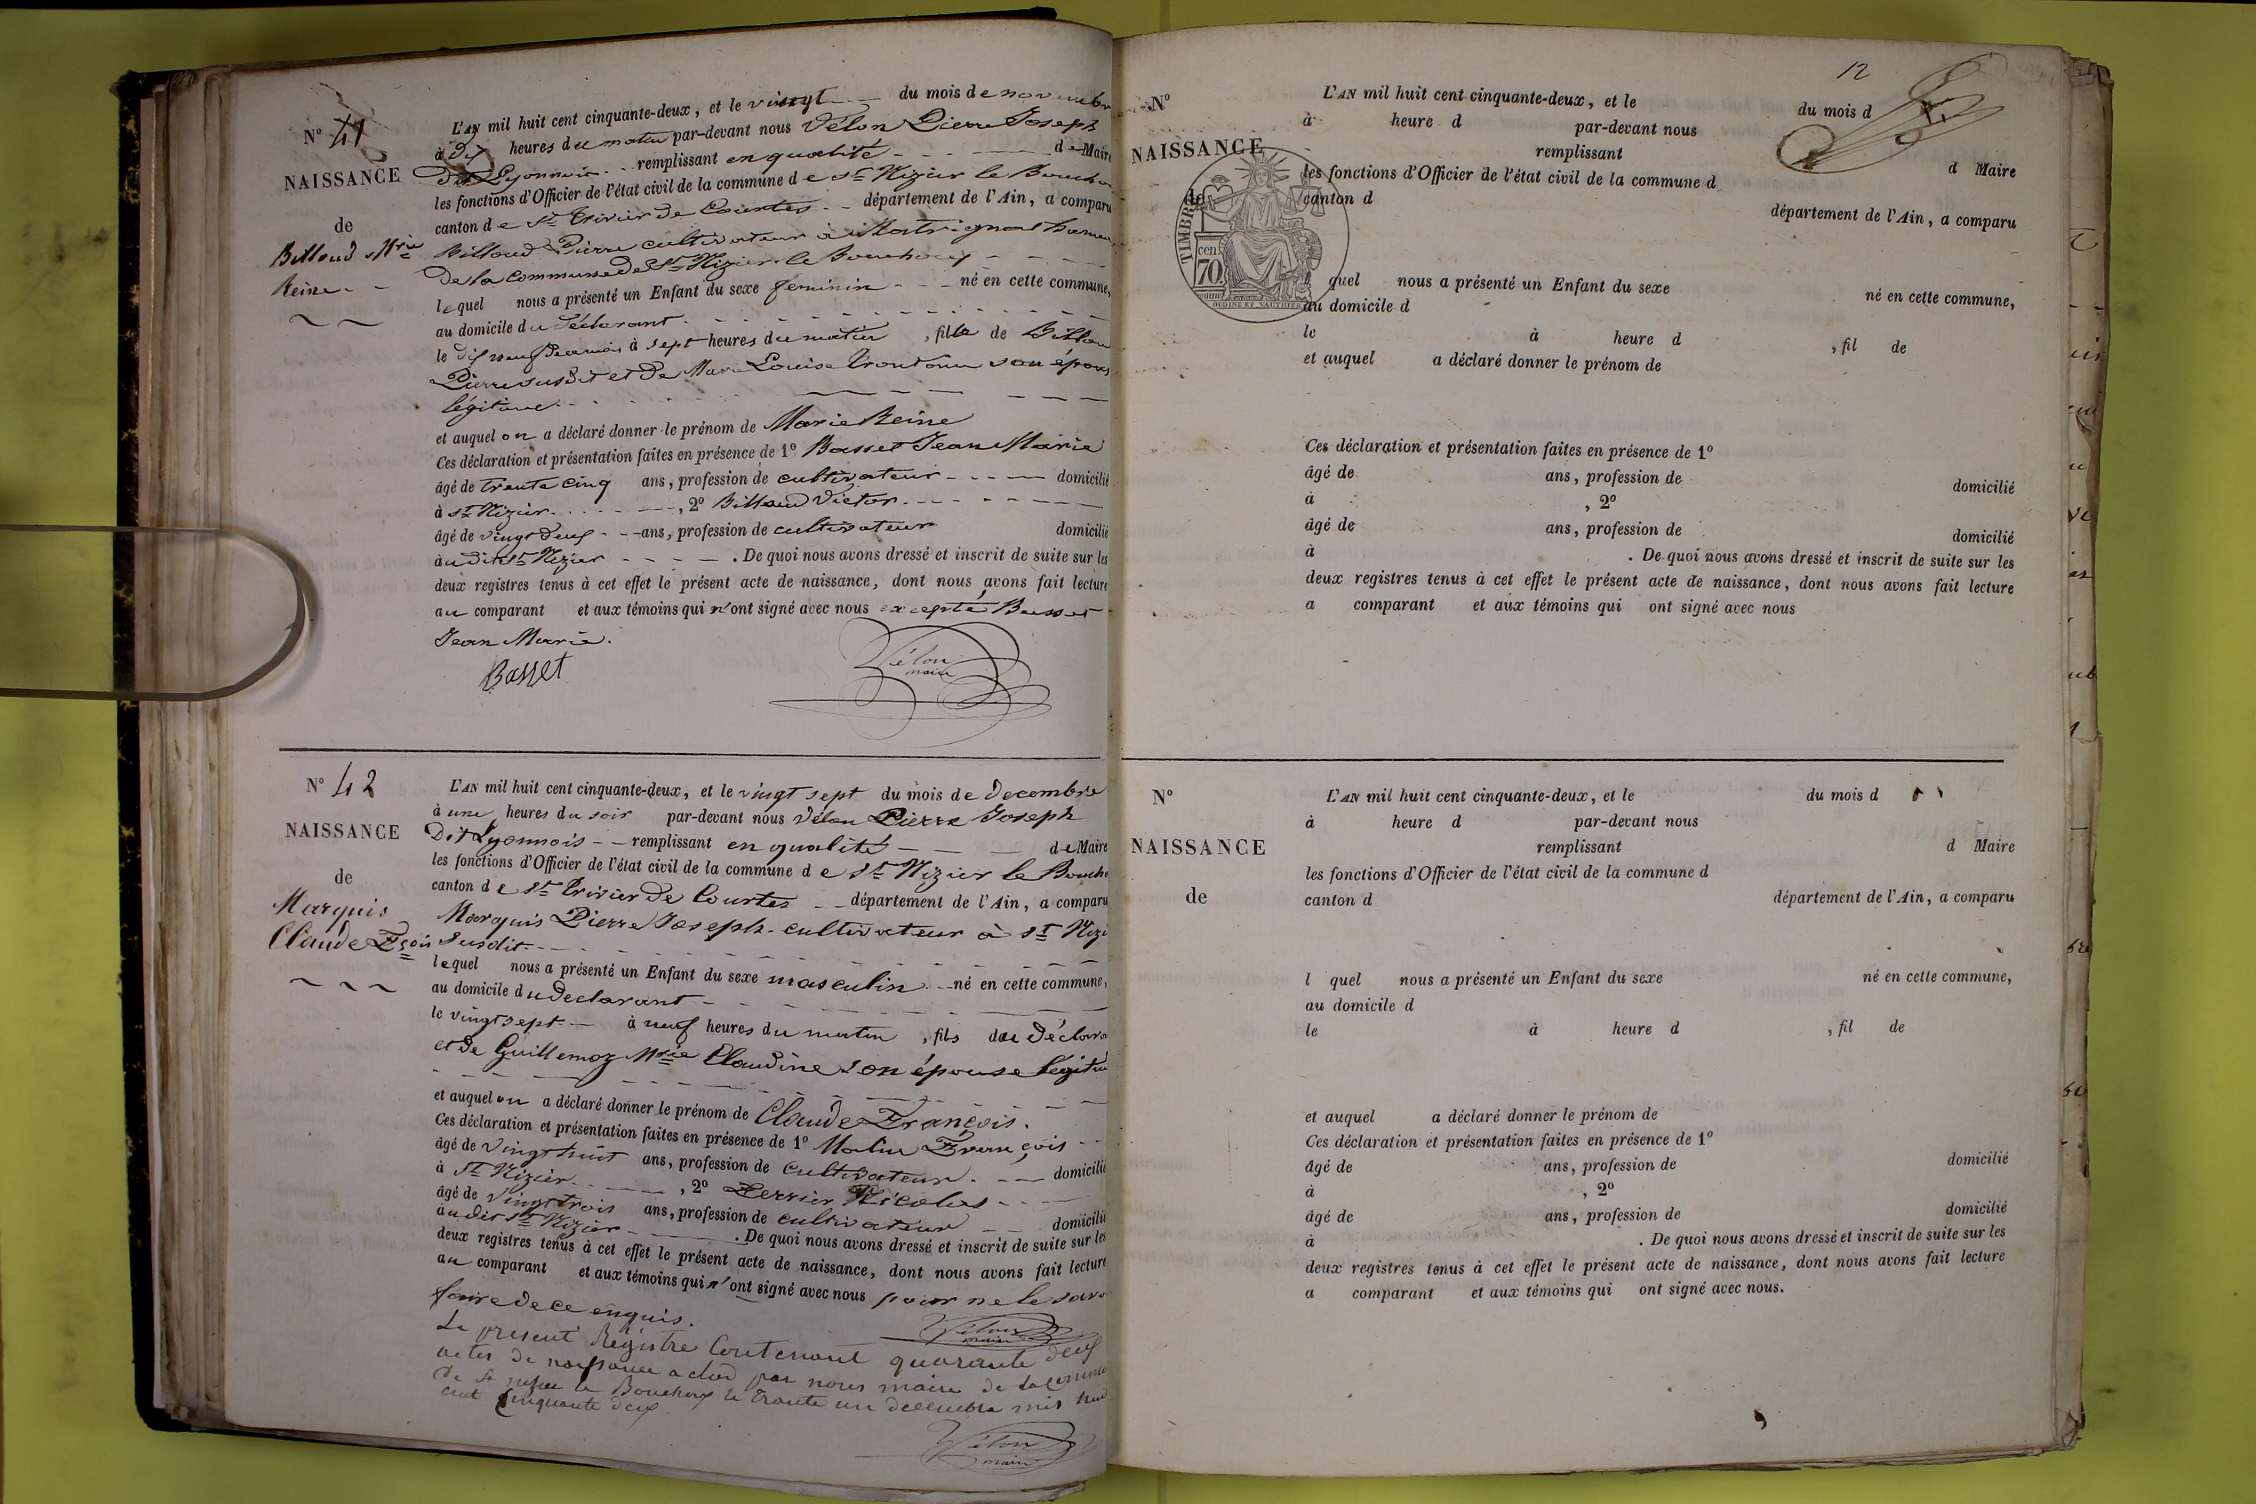 N° 41
NAISSANCE
de
Billoud Mrie
Reine
L'AN mil huit cent cinquante-deux, et le vingt du mois de novembr
à dix heures du matin par-devant nous Vélon Pierre Joseph
dit Lyonnois remplissant en qualité de Maire
les fonctions d'Officier de l'état civil de la commune de St Nizier le Boucho
canton de St Trivier de Courtes département de l'Ain, a comparu
Billoud Pierre cultivateur à hameau
de la commune de St Nizier le Bouchoux
lequel nous a présenté un Enfant du sexe feminin né en cette commune,
au domicile du déclarant
le dix neuf à sept heures du matin, fille de Billou
Pierre susdit et de Marie Louise son épous
légitime
et auquel on a déclaré donner le prénom de Marie Reine
Ces déclaration et présentation faites en présence de 1° Basset Jean Marie
âgé de trente cinq ans, profession de cultivateur domicilié
à St Nizier, 2° Billoud Victor
âgé de vingt deux ans, profession de cultivateur domicilié
audit St Nizier. De quoi nous avons dressé et inscrit de suite sur les
deux registres tenus à cet effet le présent acte de naissance, dont nous avons fait lecture
au comparant et aux témoins qui n'ont signé avec nous excepté Basset
Jean Marie.
Basset
Vélon
maire
N° 42
NAISSANCE
de
Marquis
Claude Fçois
L'AN mil huit cent cinquante-deux, et le vingt sept du mois de decembre
à une heures du soir par-devant nous Vélon Pierre Joseph
Dit Lyonnois remplissant en qualité de Maire
les fonctions d'Officier de l'état civil de la commune de St Nizier le Bouche
canton de St Trivier de Courtes département de l'Ain, a comparu
Marquis Pierre Joseph cultivateur à St Nizi
susdit
lequel nous a présenté un Enfant du sexe masculin né en cette commune,
au domicile du declarant
le vingt sept à neuf heures du matin, fils du déclara
et de Guillemoz Mrie Claudine son épouse légitim
et auquel on a déclaré donner le prénom de Claude François.
Ces déclaration et présentation faites en présence de 1° François
âgé de vingt huit ans, profession de cultivateur domicilié
à St Nizier, 2° Perrier Nicolas
âgé de vingt trois ans, profession de cultivateur domicilié
audit St Nizier. De quoi nous avons dressé et inscrit de suite sur les
deux registres tenus à cet effet le présent acte de naissance, dont nous avons fait lecture
au comparant et aux témoins qui n'ont signé avec nous pour ne le savo
faire de ce enquis.
Vélon
maire
Le present Régistre Contenant quarante deux
actes de naissance a clos par nous maire de la commune
de St nizier le Bouchoux le trente un decembre mis huit
cent cinquante deux
Vélon
maire
12
N°
NAISSANCE
de
TIMBRE
cen.
70.
L'AN mil huit cent cinquante-deux, et le du mois d
à heure d par-devant nous
remplissant d Maire
les fonctions d'Officier de l'état civil de la commune d
canton d département de l'Ain, a comparu
quel nous a présenté un Enfant du sexe né en cette commune,
au domicile d
le à heure d , fil de
et auquel a déclaré donner le prénom de
Ces déclaration et présentation faites en présence de 1°
âgé de ans, profession de domicilié
à , 2°
âgé de ans, profession de domicilié
à . De quoi nous avons dressé et inscrit de suite sur les
deux registres tenus à cet effet le présent acte de naissance, dont nous avons fait lecture
a comparant et aux témoins qui ont signé avec nous
N°
NAISSANCE
de
L'AN mil huit cent cinquante-deux, et le du mois d
à heure d par-devant nous
remplissant d Maire
les fonctions d'Officier de l'état civil de la commune d
canton d département de l'Ain, a comparu
l quel nous a présenté un Enfant du sexe né en cette commune,
au domicile d
le à heure d , fil de
et auquel a déclaré donner le prénom de
Ces déclaration et présentation faites en présence de 1°
âgé de ans, profession de domicilié
à , 2°
âgé de ans, profession de domicilié
à . De quoi nous avons dressé et inscrit de suite sur les
deux registres tenus à cet effet le présent acte de naissance, dont nous avons fait lecture
a comparant et aux témoins qui ont signé avec nous.